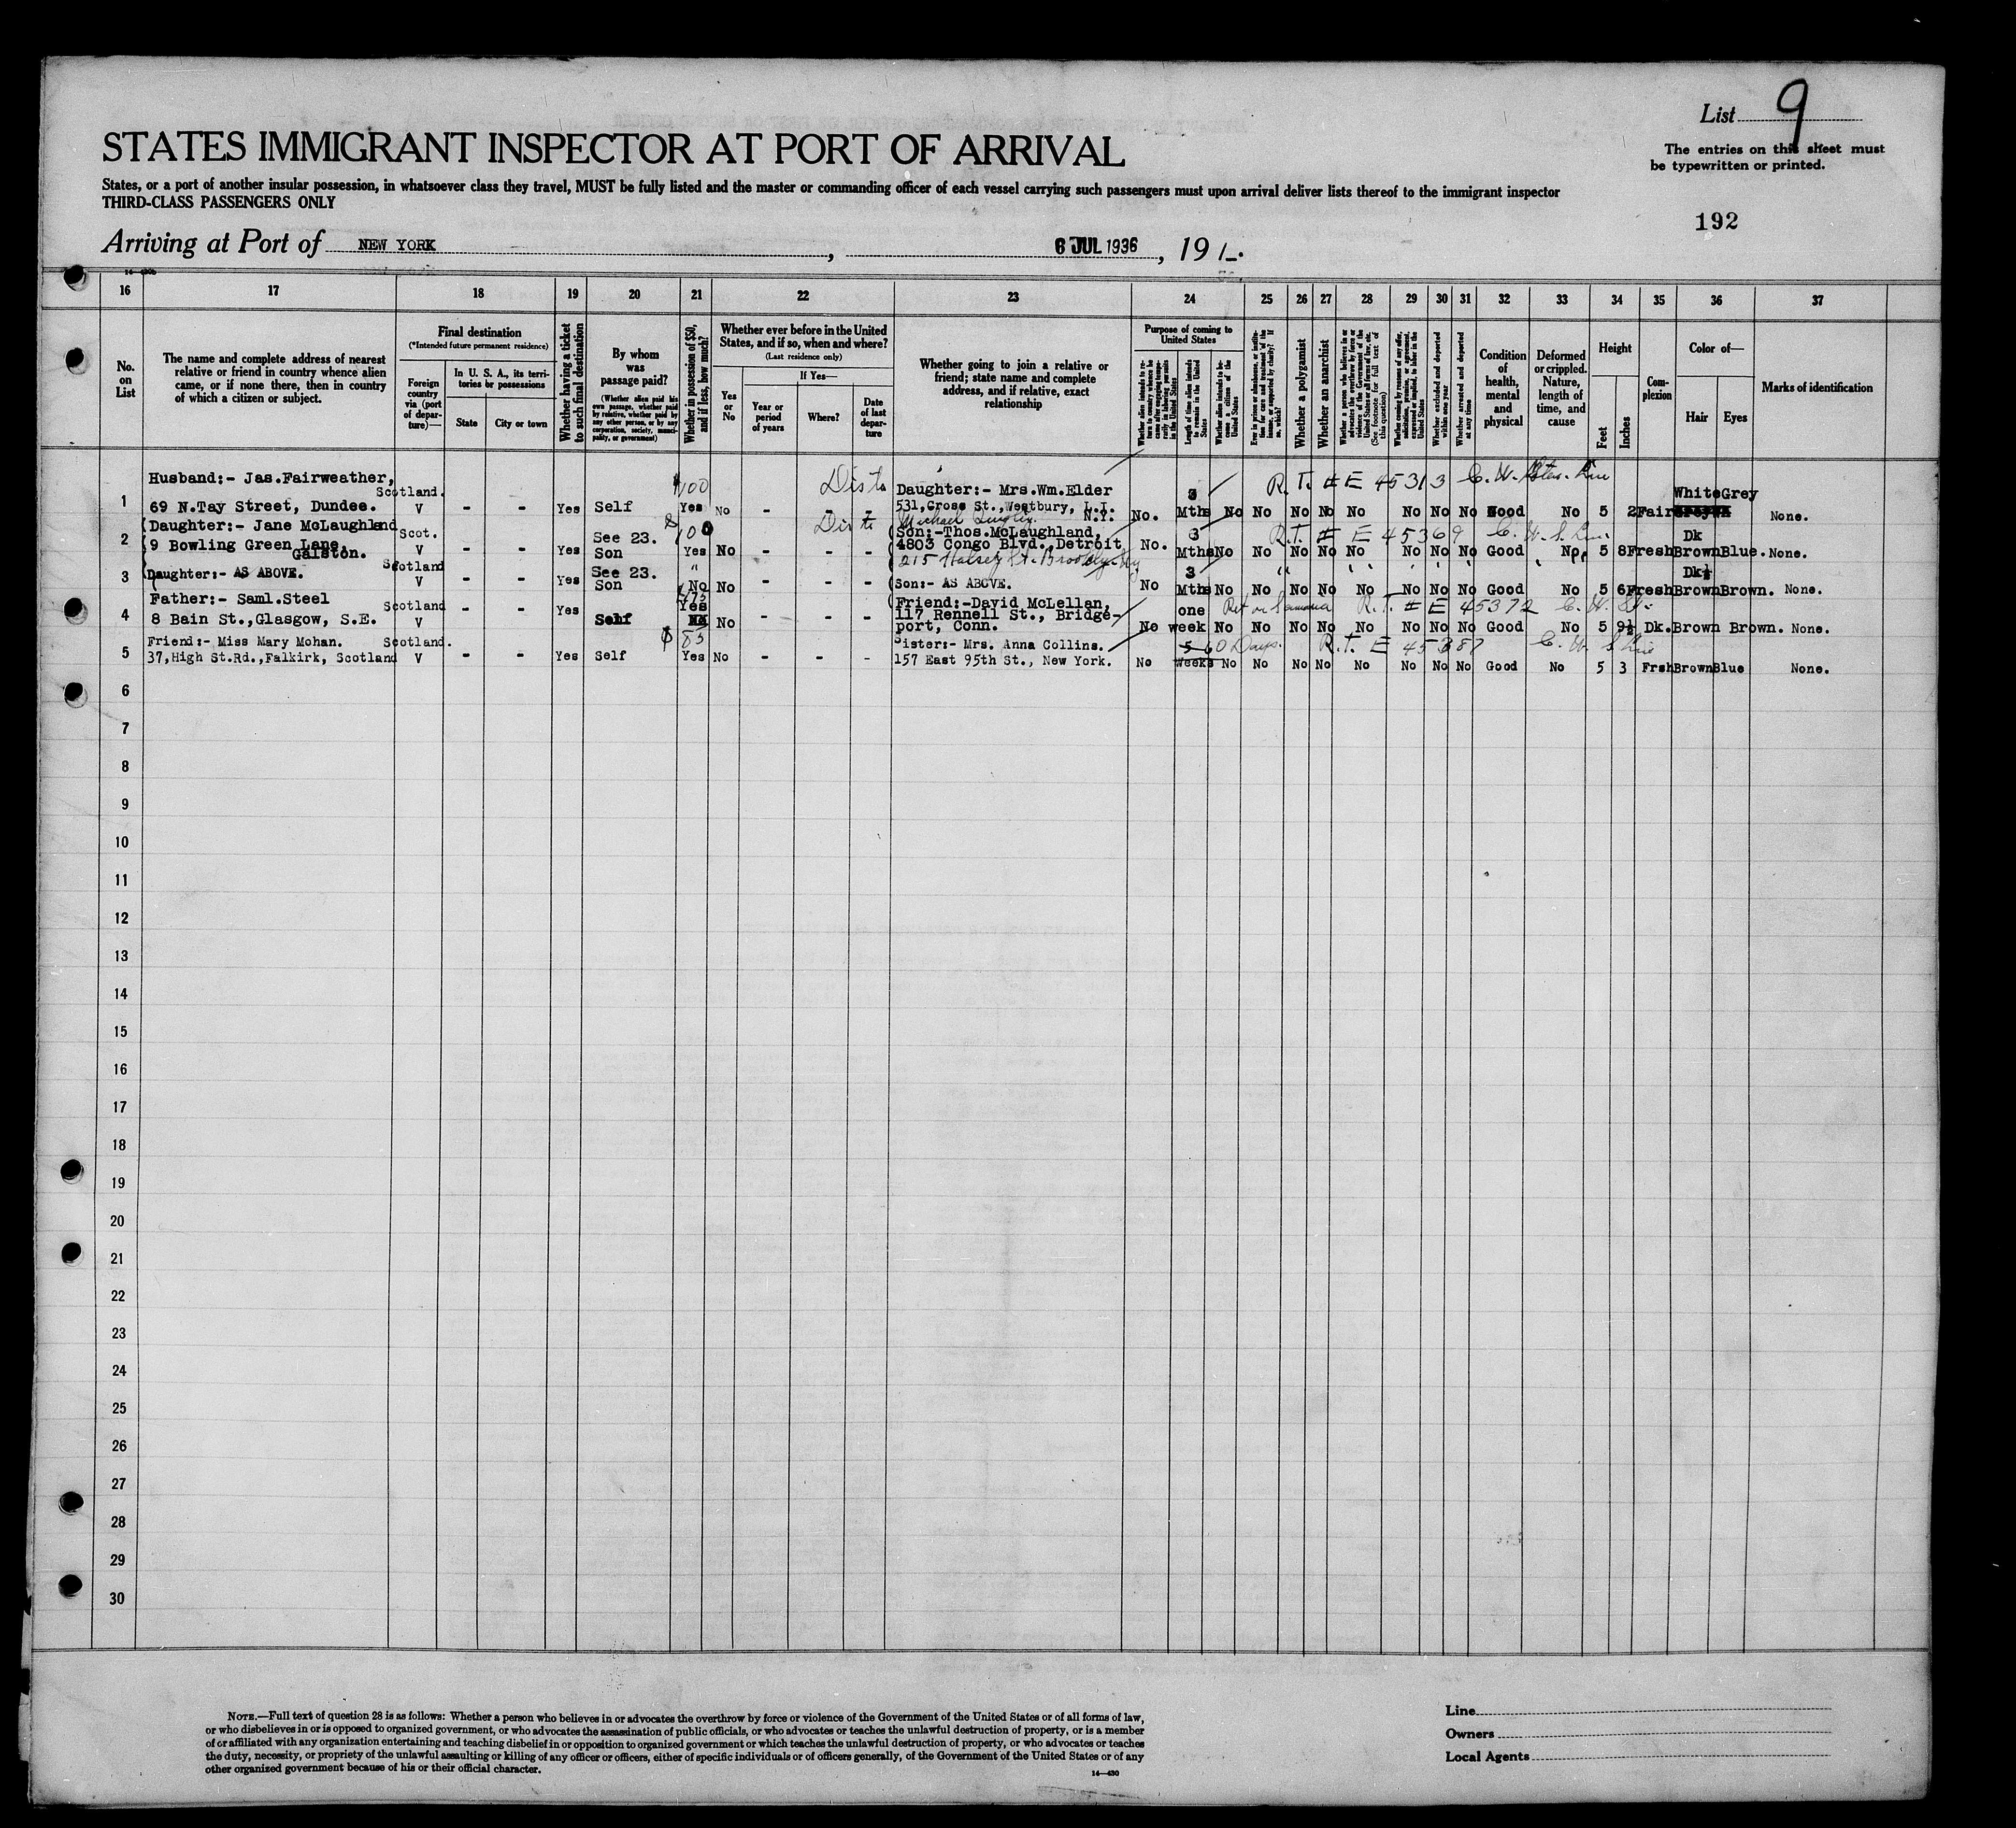 List 9
The entries on this sheet must
be typewritten or printed.
STATES IMMIGRANT INSPECTOR AT PORT OF ARRIVAL
States, or a port of another insular possession, in whatsoever class they travel, MUST be fully listed and the master or commanding officer of each vessel carrying such passengers must upon arrival deliver lists thereof to the immigrant inspector
THIRD-CLASS PASSENGERS ONLY
192
Arriving at Port of NEW YORK, 6 JUL 1936, 19
16 17 18 19 20 21 22 23 24 25 26 27 28 29 30 31 32 33 34 35 36 37
No.
on
List
The name and complete address of nearest
relative or friend in country whence alien
came, or if none there, then in country
of which a citizen or subject.
Final destination
(*Intended future permanent residence)
Foreign
country
via (port
of depar-
ture)—
In U. S. A., its terri-
tories or possessions
State
City or town
Whether having a ticket
to such final destination
By whom
was
passage paid?
(Whether alien paid his
own passage, whether paid
by relative, whether paid by
any other person, or by any
corporation, society, munici-
pality, or government)
Whether in possession of $50,
and if less, how much?
Whether ever before in the United
States, and if so, when and where?
(Last residence only)
Yes
or
No
If Yes—
Year or
period
of years
Where?
Date
of last
depar-
ture
Whether going to join a relative or
friend; state name and complete
address, and if relative, exact
relationship
Purpose of coming to
United States
Whether alien intends to re-
turn to country whence he
came after engaging tempo-
rarily in laboring pursuits
in the United States
Length of time alien intends
to remain in the United
States
Whether alien intends to be-
come a citizen of the
United States
Ever in prison or almshouse, or institu-
tion for care and treatment of the
insane, or supported by charity? If
so, which?
Whether a polygamist
Whether an anarchist
Whether a person who believes in or
advocates the overthrow by force or
violence of the Government of the
United States or all forms of law, etc.
(See footnote for full text of
this question)
Whether coming by reason of any offer,
solicitation, promise, or agreement,
expressed or implied, to labor in the
United States
Whether excluded and deported
within one year
Whether arrested and deported
at any time
Condition
of
health,
mental
and
physical
Deformed
or crippled.
Nature,
length of
time, and
cause
Height
Feet
Inches
Com-
plexion
Color of—
Hair
Eyes
Marks of identification
Husband:- Jas.Fairweather, Scotland. $100 Daughter:- Mrs.Wm.Elder 3 R.T. # E 45313 White Grey
1 69 N.Tay Street, Dundee. V - - Yes Self Yes No - - - 531,Gross St.,Westbury, L.I. N.Y. No. Mths No No No No No No No No Good No 5 2 Fair None.
Daughter:- Jane McLaughland Scot. See 23. $100 Son:-Thos.McLaughland, 3 R.T. # E 45369 Dk
2 9 Bowling Green Lane, Galston. V - - Yes Son Yes No - - - 4803 Congo Blvd.,Detroit No. Mths No No No No No No No No Good No, 5 8 Fresh Brown Blue. None.
215 Halsey St. Brooklyn Ny
Scotland See 23. " 3 Dk
3 Daughter:- AS ABOVE. V - - Yes Son No No - - - Son:- AS ABOVE. No Mths No No No No No No No No Good No 5 6 Fresh Brown Brown. None.
Father:- Saml.Steel Scotland Yes Friend:-David McLellan, one R.T. # E 45372
4 8 Bain St.,Glasgow, S.E. V - - Yes Self No - - - 117 Rennell St., Bridge-
port, Conn. No week No No No No No No No No Good No 5 9½ Dk. Brown Brown. None.
Friend:- Miss Mary Mohan. Scotland. $85 Sister:- Mrs. Anna Collins. 60 Days. R.T. E 45387
5 37,High St.Rd.,Falkirk, Scotland V - - Yes Self Yes No - - - 157 East 95th St., New York. No Weeks No No No No No No No No Good No 5 3 Frsh Brown Blue None.
6
7
8
9
10
11
12
13
14
15
16
17
18
19
20
21
22
23
24
25
26
27
28
29
30
NOTE.—Full text of question 28 is as follows: Whether a person who believes in or advocates the overthrow by force or violence of the Government of the United States or of all forms of law,
or who disbelieves in or is opposed to organized government, or who advocates the assassination of public officials, or who advocates or teaches the unlawful destruction of property, or is a member
of or affiliated with any organization entertaining and teaching disbelief in or opposition to organized government or which teaches the unlawful destruction of property, or who advocates or teaches
the duty, necessity, or propriety of the unlawful assaulting or killing of any officer or officers, either of specific individuals or of officers generally, of the Government of the United States or of any
other organized government because of his or their official character.
14—430
Line
Owners
Local Agents